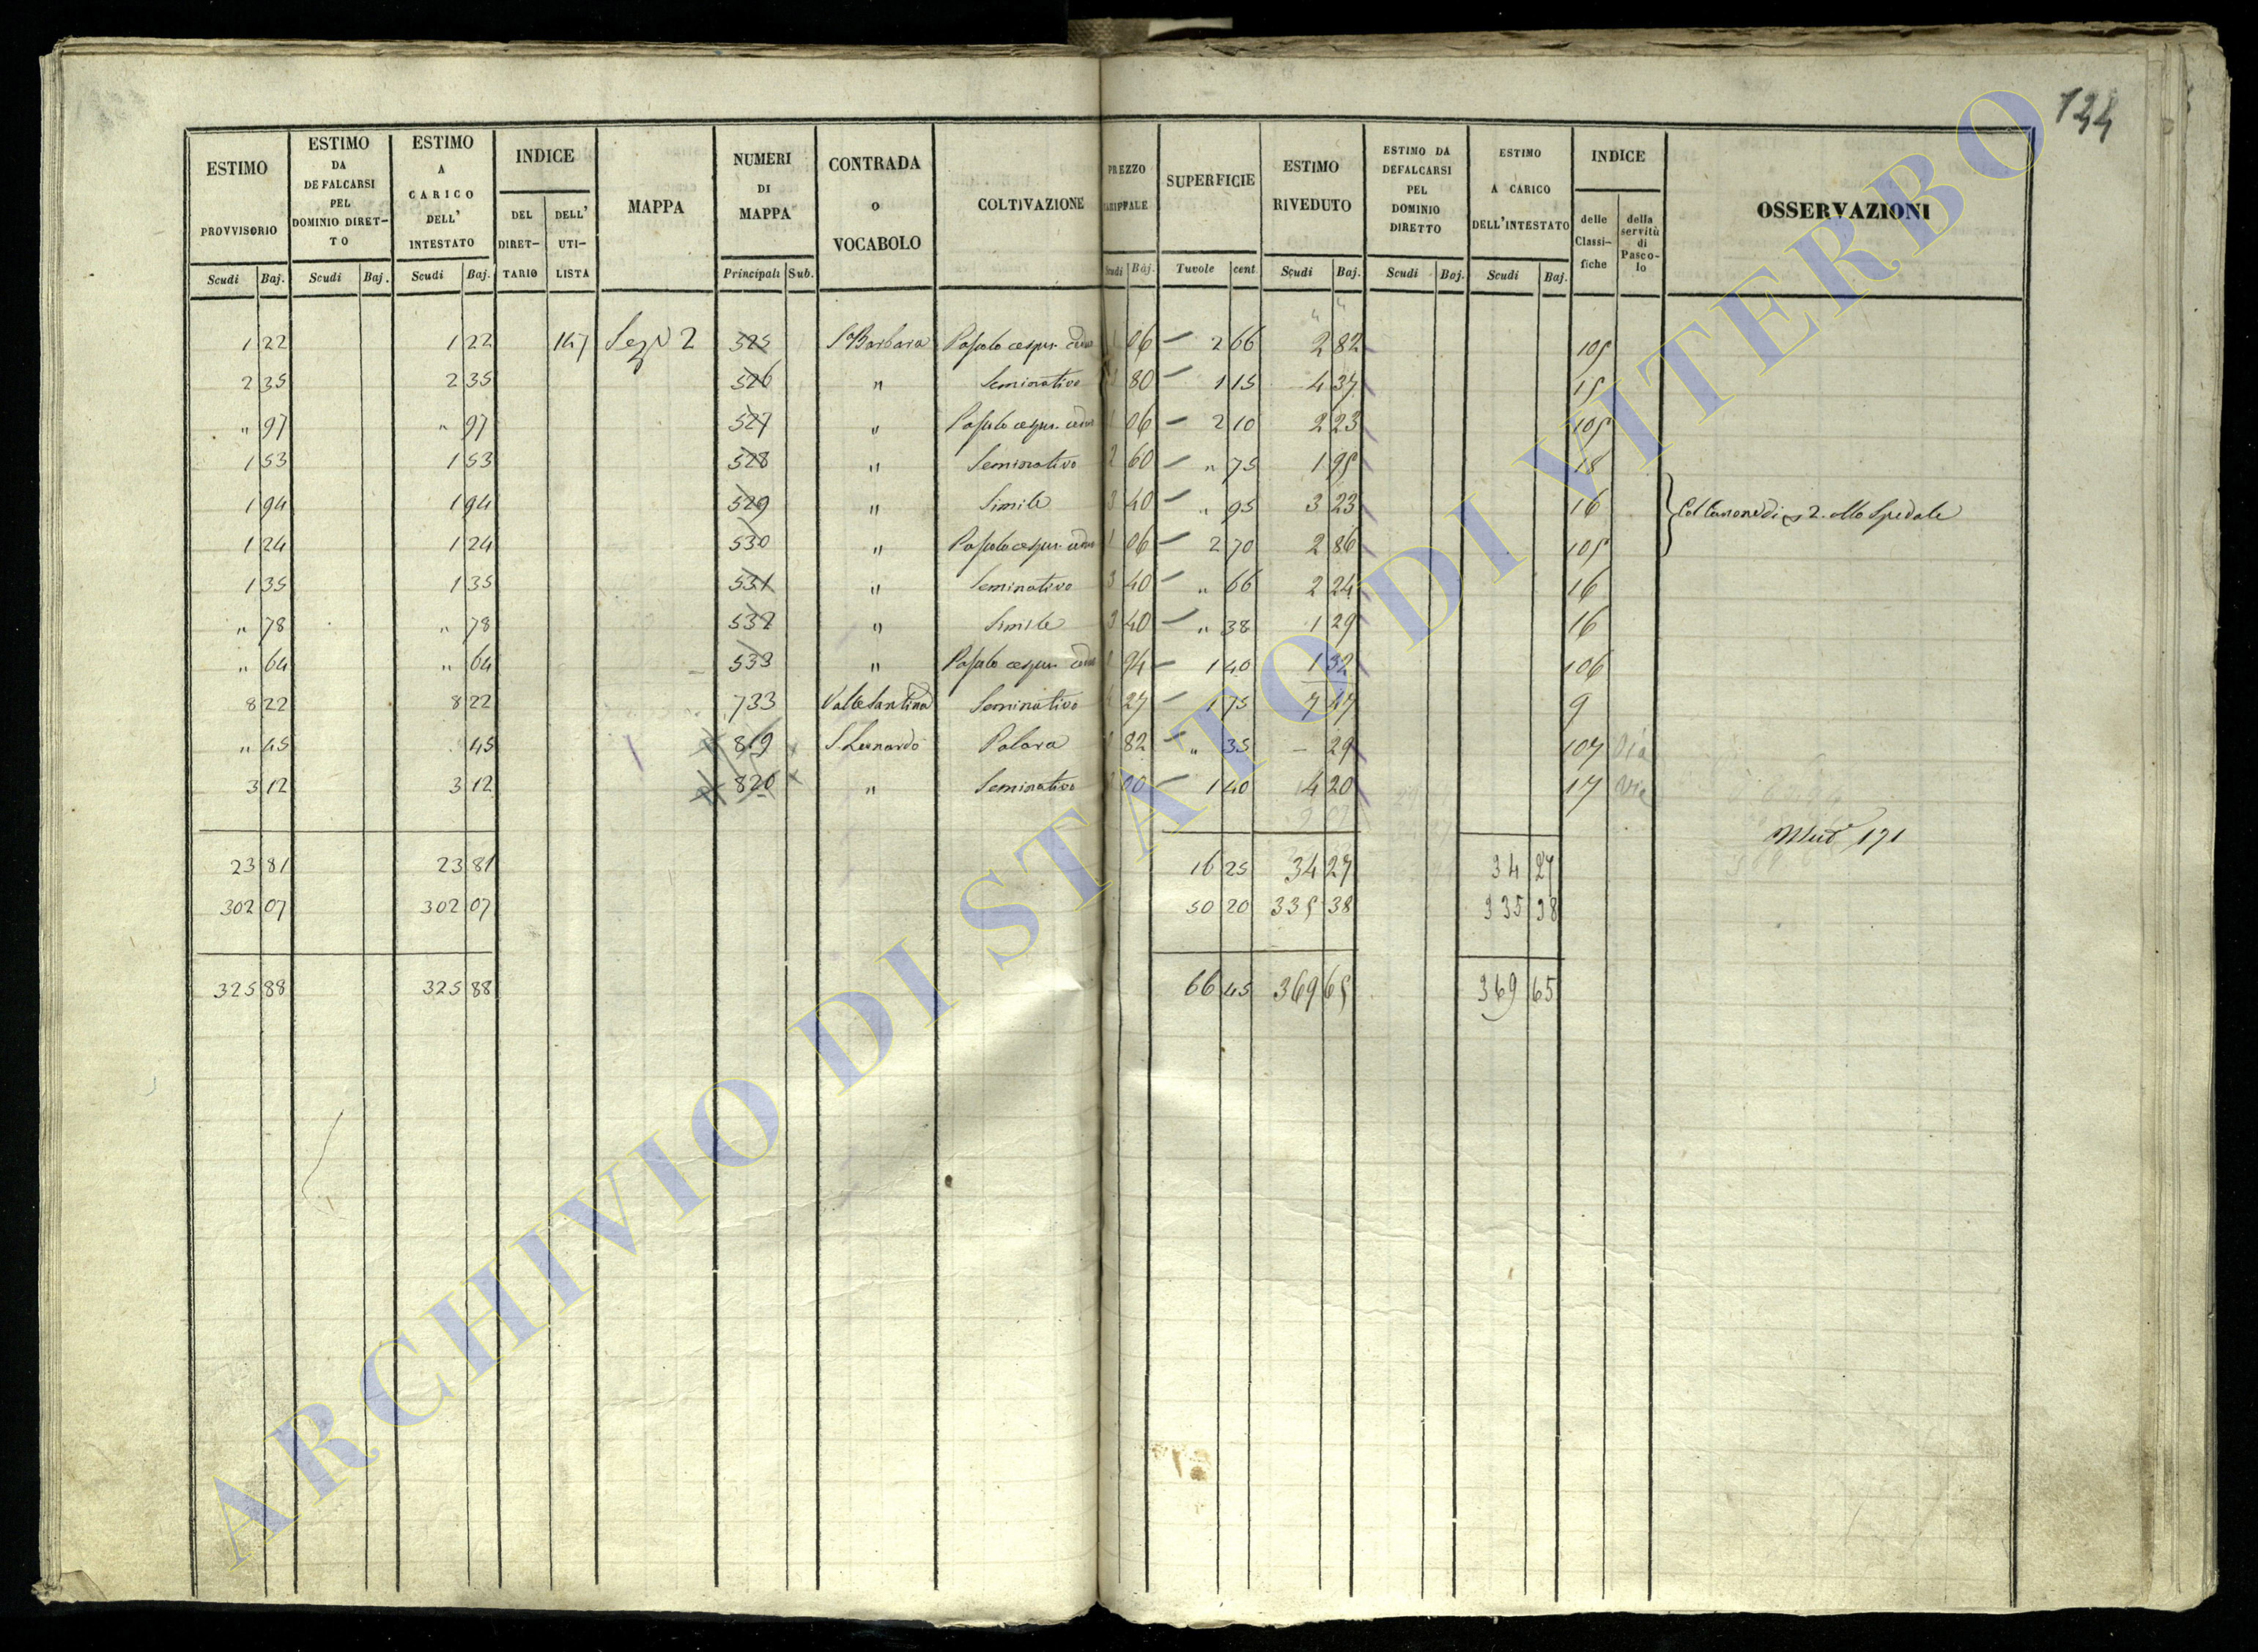 144
ESTIMO PROVVISORIO Scudi Baj.
ESTIMO DA DEFALCARSI PEL DOMINIO DIRETTO Scudi Baj.
ESTIMO A CARICO DELL' INTESTATO Scudi Baj.
INDICE DEL DIRETTARIO DELL' UTILISTA
MAPPA
NUMERI DI MAPPA Principali Sub.
CONTRADA O VOCABOLO
COLTIVAZIONE
PREZZO Scudi Baj.
SUPERFICIE Tavole cent.
ESTIMO RIVEDUTO Scudi Baj.
ESTIMO DA DEFALCARSI PEL DOMINIO DIRETTO Scudi Baj.
ESTIMO A CARICO DELL'INTESTATO Scudi Baj.
INDICE delle Classifiche della servitù di Pascolo
OSSERVAZIONI
1 22 1 22 147 Sez 2 525 S. Barbara 1 06 – 2 66 2 82 105
2 35 2 35 526 " Seminativo 3 80 – 1 15 4 37 15
" 97 " 97 527 " 1 06 – 2 10 2 23 105
1 53 1 53 528 " Seminativo 2 60 – " 75 1 95 18
1 94 1 94 529 " Simile 3 40 – " 95 3 23 16 allo Spedale
1 24 1 24 530 " 1 06 – 2 70 2 86 105
1 35 1 35 531 " Seminativo 3 40 – " 66 2 24 16
" 78 " 78 532 " Simile 3 40 – " 38 1 29 16
" 64 " 64 533 " 94 – 1 40 1 32 106
8 22 8 22 733 Valle Santina Seminativo 4 27 – 1 75 7 47 9
" 45 45 819 S. Leonardo 82 – " 35 – 29 107 Via
3 12 3 12 820 " Seminativo 3 00 – 1 40 4 20 17 Via
171
23 81 23 81 16 25 34 27 34 27
302 07 302 07 50 20 335 38 335 38
325 88 325 88 66 45 369 65 369 65
ARCHIVIO DI STATO DI VITERBO